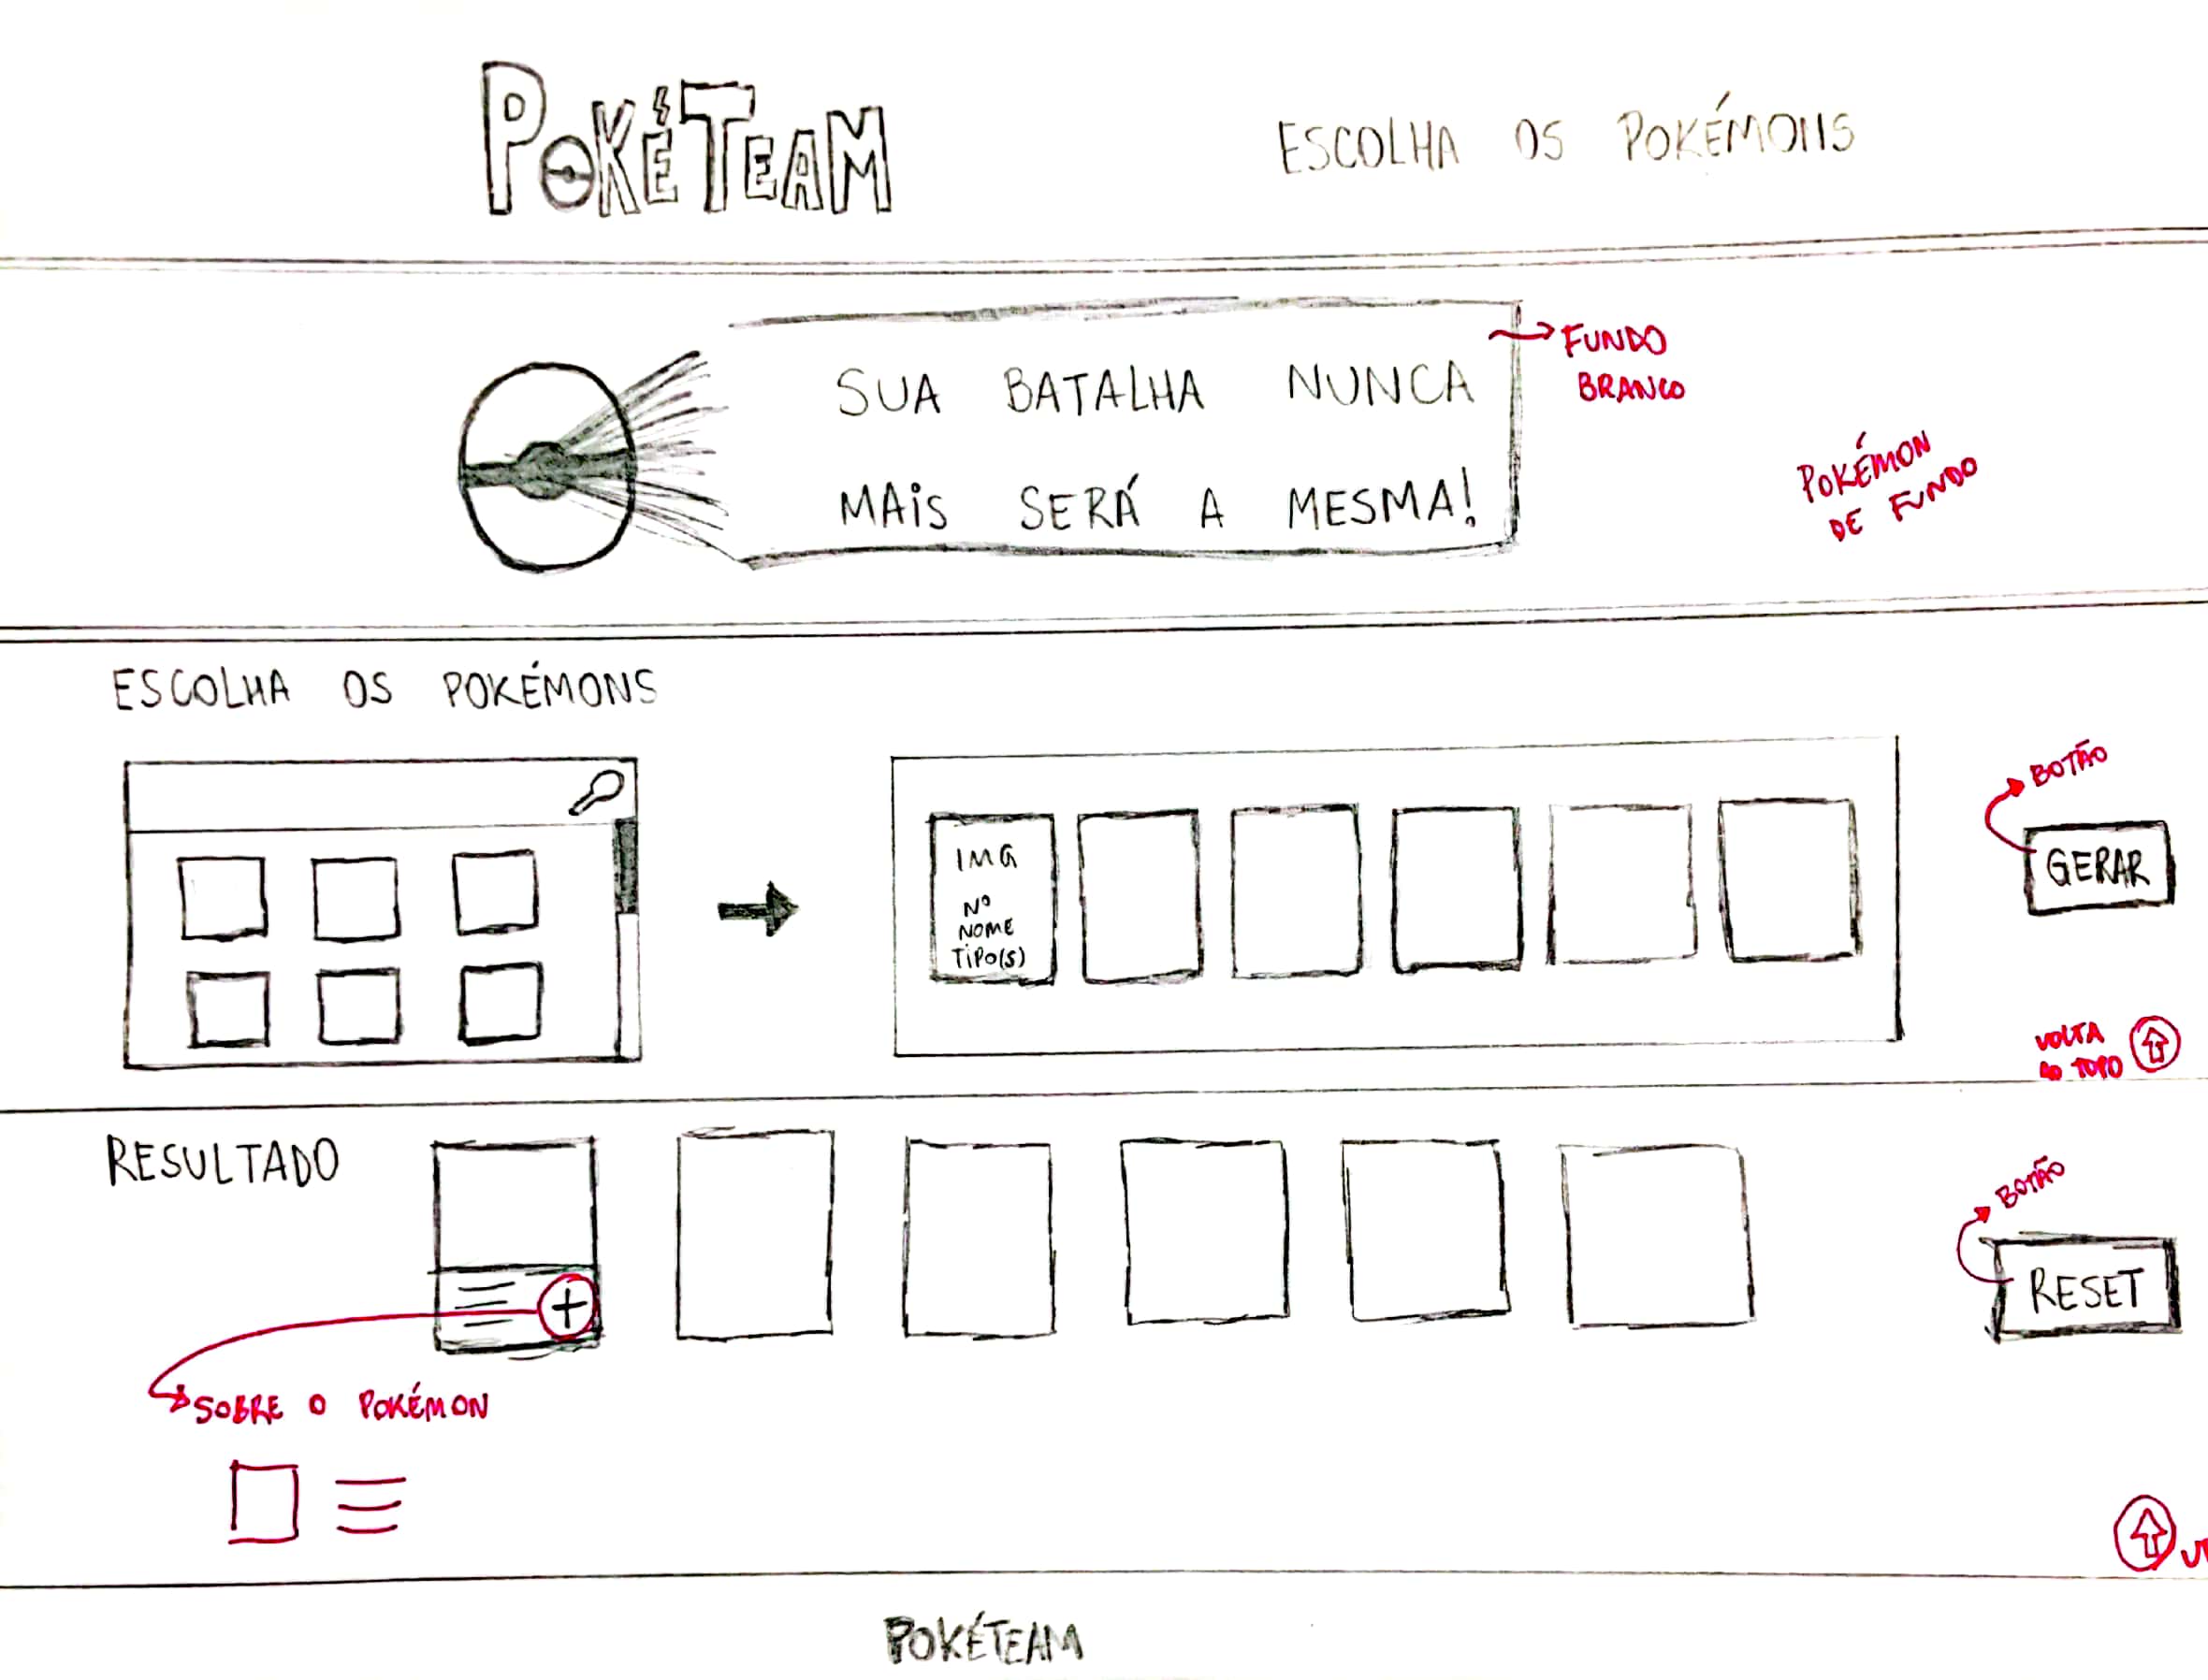 POKÉTEAM
ESCOLHA OS POKÉMONS
SUA BATALHA NUNCA
MAIS SERÁ A MESMA!
FUNDO
BRANCO
POKÉMON
DE FUNDO
ESCOLHA OS POKÉMONS
IMG
Nº
NOME
TIPO(S)
BOTÃO
GERAR
VOLTA
AO TOPO
RESULTADO
BOTÃO
RESET
SOBRE O POKÉMON
POKÉTEAM